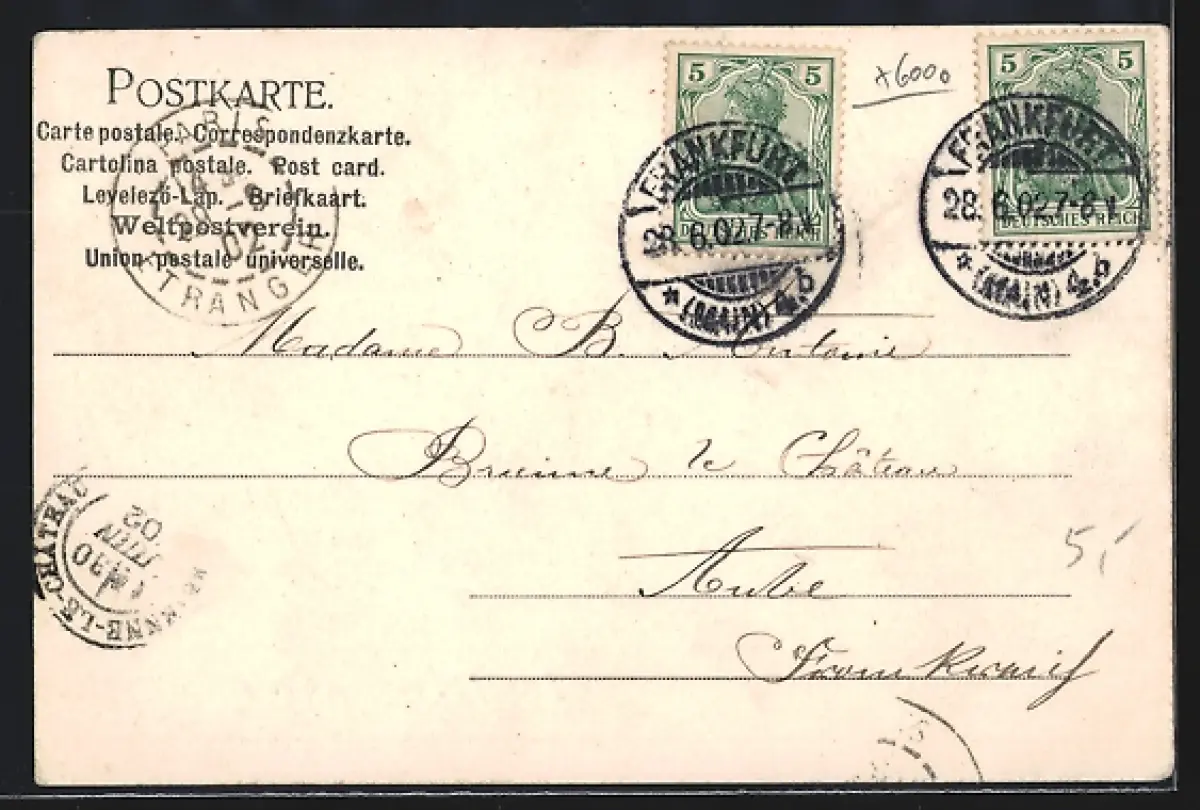 POSTKARTE.
Carte postale. Correspondenzkarte.
Cartolina postale. Post card.
Levelező-Lap. Briefkaart.
Weltpostverein.
Union postale universelle.
PARIS
ETRANGER
5 5
DEUTSCHES REICH
FRANKFURT
28.6.02.7-8V.
* (MAIN) 4.b
x6000
5 5
DEUTSCHES REICH
FRANKFURT
28.6.02.7-8V.
* (MAIN) 4.b
Madame B. Antoine
Brienne le Château
Aube
Frankreich
BRIENNE-LE-CHATEAU
02
5,-